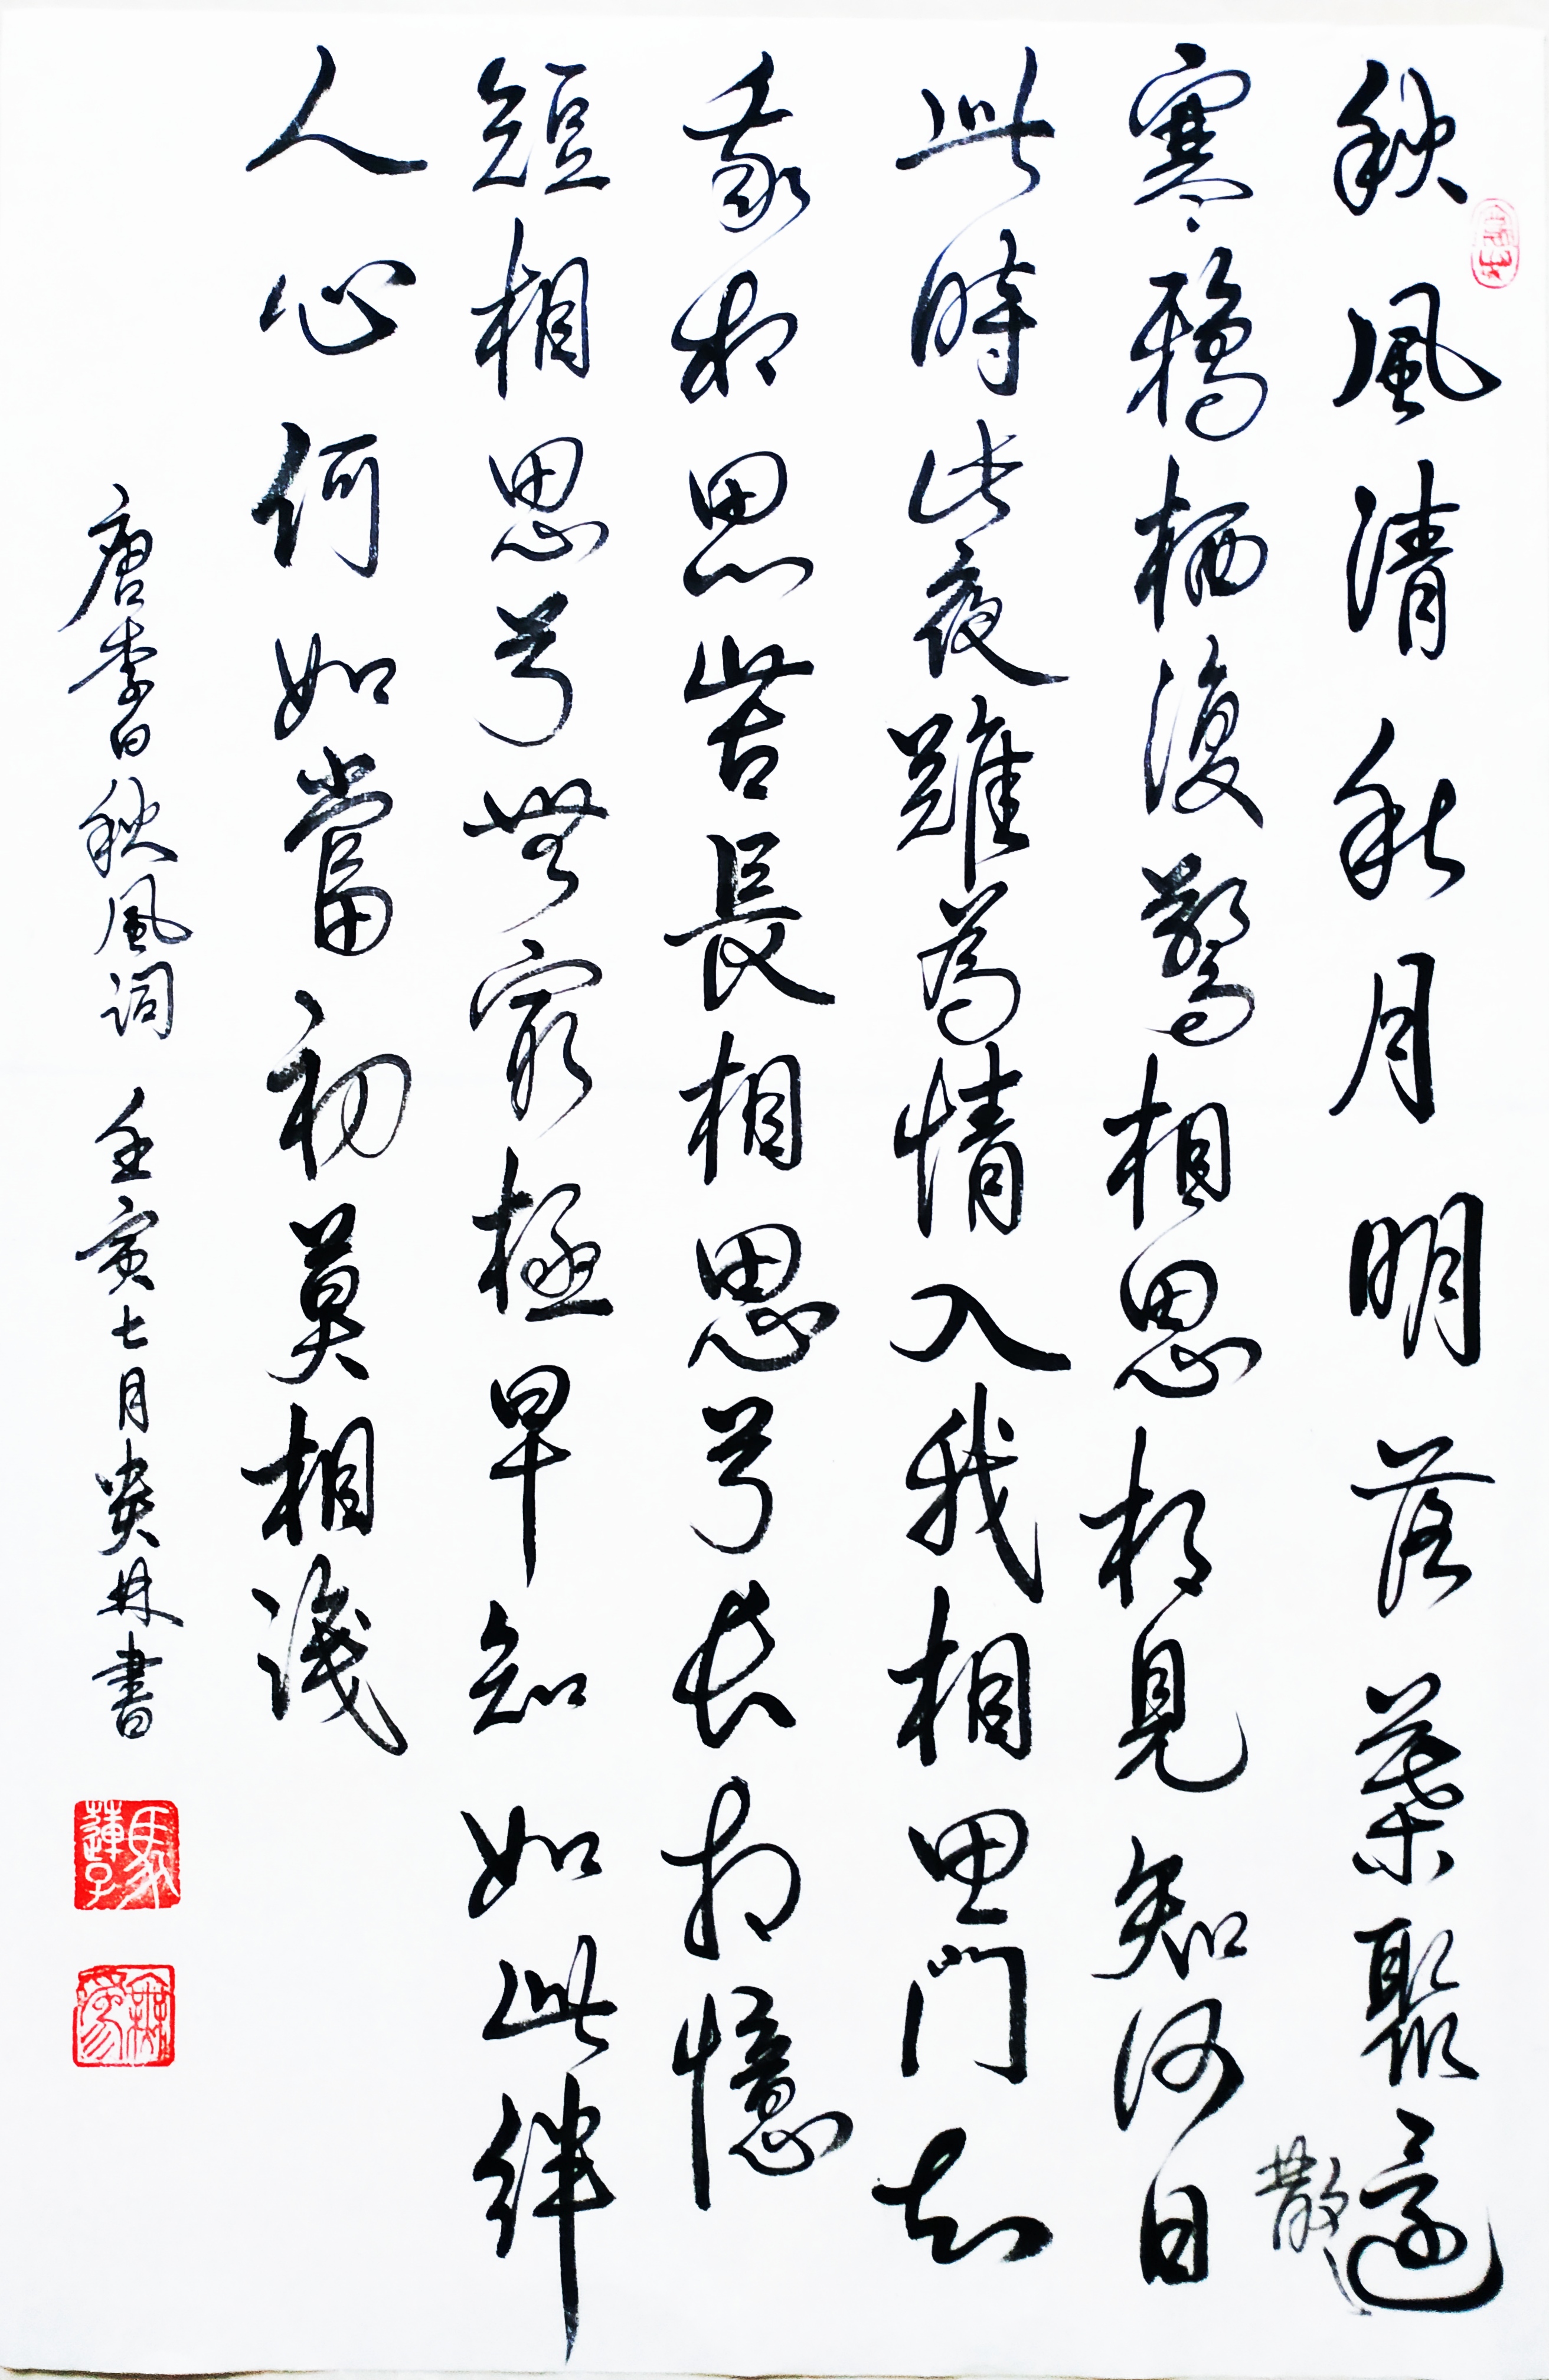 秋風清秋月明落葉聚還
散
寒鴉栖復驚相思相見知何日
此時此夜難為情入我相思門知
我相思苦長相思兮长相憶
短相思兮無窮極早知如此絆
人心何如當初莫相識
唐李白秋風詞 壬寅七月林書